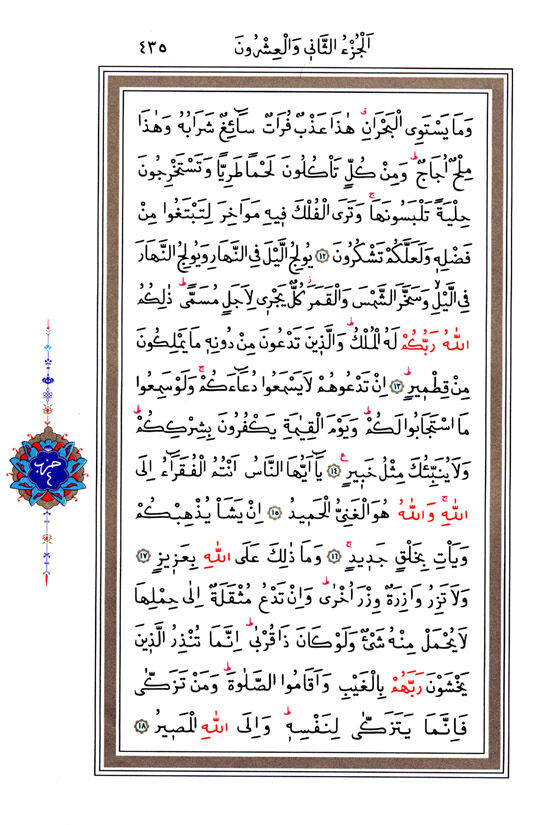 اَلْجُزْءُ الثَّانٖي وَالْعِشْرُونَ ٤٣٥
وَمَا يَسْتَوِي الْبَحْرَانِۗ هٰذَا عَذْبٌ فُرَاتٌ سَٓائِغٌ شَرَابُهُ وَهٰذَا
مِلْحٌ اُجَاجٌۜ وَمِنْ كُلٍّ تَأْكُلُونَ لَحْمًا طَرِيًّا وَتَسْتَخْرِجُونَ
حِلْيَةً تَلْبَسُونَهَاۚ وَتَرَى الْفُلْكَ فٖيهِ مَوَاخِرَ لِتَبْتَغُوا مِنْ
فَضْلِهٖ وَلَعَلَّكُمْ تَشْكُرُونَ ﴿١٢﴾ يُولِجُ الَّيْلَ فِي النَّهَارِ وَيُولِجُ النَّهَارَ
فِي الَّيْلِۙ وَسَخَّرَ الشَّمْسَ وَالْقَمَرَؗ كُلٌّ يَجْرٖي لِاَجَلٍ مُسَمًّىۜ ذٰلِكُمُ
اللّٰهُ رَبُّكُمْ لَهُ الْمُلْكُۜ وَالَّذٖينَ تَدْعُونَ مِنْ دُونِهٖ مَا يَمْلِكُونَ
مِنْ قِطْمٖيرٍۜ ﴿١٣﴾ اِنْ تَدْعُوهُمْ لَا يَسْمَعُوا دُعَٓاءَكُمْۚ وَلَوْ سَمِعُوا
مَا اسْتَجَابُوا لَكُمْۜ وَيَوْمَ الْقِيٰمَةِ يَكْفُرُونَ بِشِرْكِكُمْۜ
وَلَا يُنَبِّئُكَ مِثْلُ خَبٖيرٍࣖ ﴿١٤﴾ يَٓا اَيُّهَا النَّاسُ اَنْتُمُ الْفُقَرَٓاءُ اِلَى
اللّٰهِۚ وَاللّٰهُ هُوَ الْغَنِيُّ الْحَمٖيدُ ﴿١٥﴾ اِنْ يَشَأْ يُذْهِبْكُمْ
وَيَأْتِ بِخَلْقٍ جَدٖيدٍۚ ﴿١٦﴾ وَمَا ذٰلِكَ عَلَى اللّٰهِ بِعَزٖيزٍ ﴿١٧﴾
وَلَا تَزِرُ وَازِرَةٌ وِزْرَ اُخْرٰىۜ وَاِنْ تَدْعُ مُثْقَلَةٌ اِلٰى حِمْلِهَا
لَا يُحْمَلْ مِنْهُ شَيْءٌ وَلَوْ كَانَ ذَا قُرْبٰىۜ اِنَّمَا تُنْذِرُ الَّذٖينَ
يَخْشَوْنَ رَبَّهُمْ بِالْغَيْبِ وَاَقَامُوا الصَّلٰوةَۜ وَمَنْ تَزَكّٰى
فَاِنَّمَا يَتَزَكّٰى لِنَفْسِهٖۜ وَاِلَى اللّٰهِ الْمَصٖيرُ ﴿١٨﴾
حزب
٤